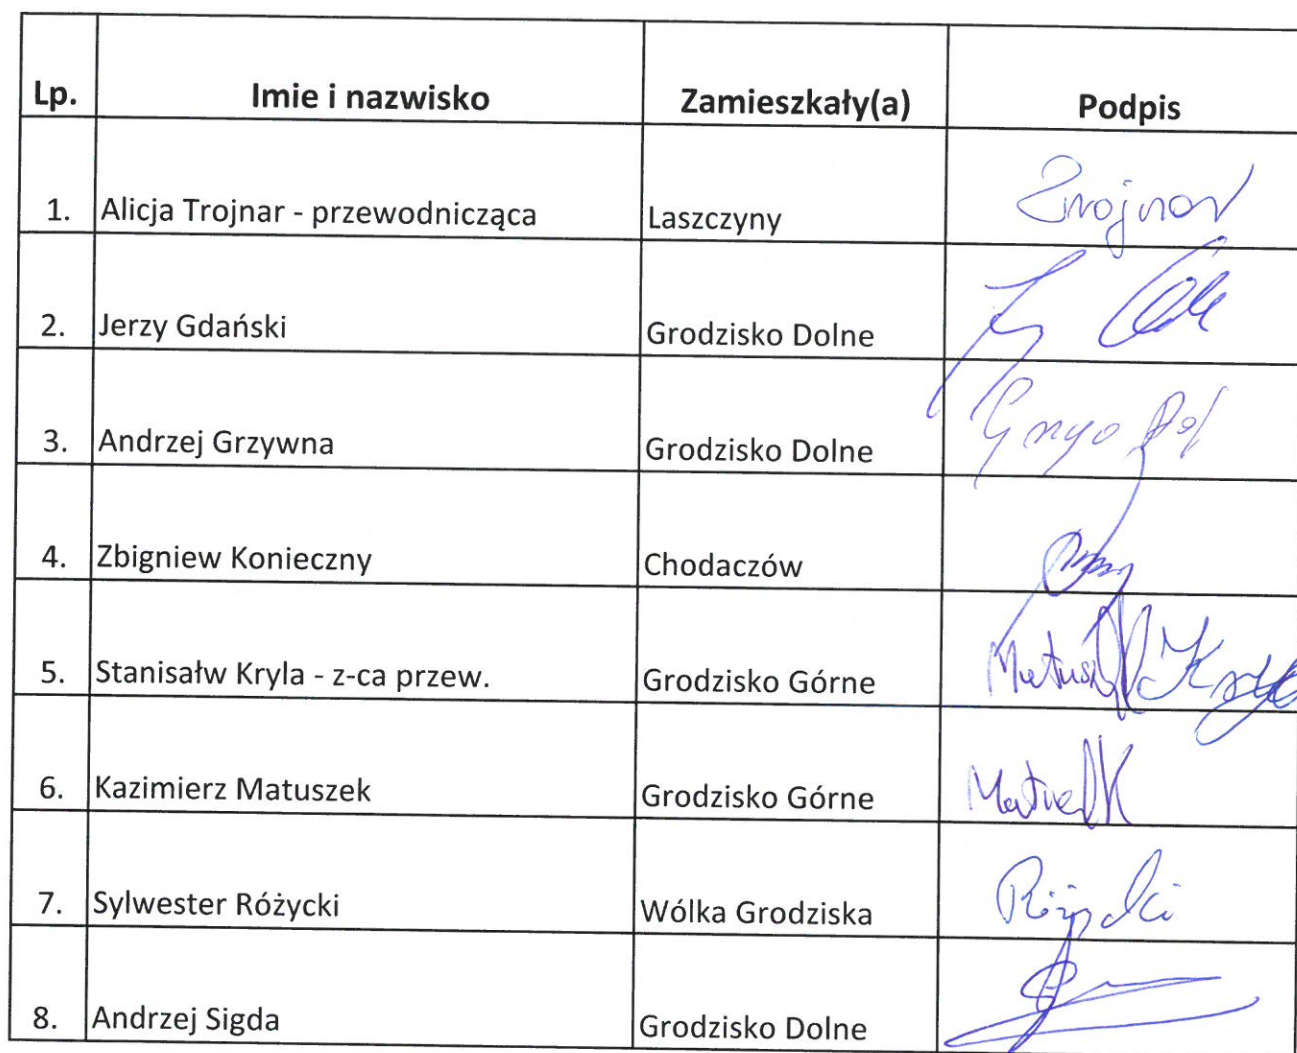 Lp. Imie i nazwisko Zamieszkały(a) Podpis
1. Alicja Trojnar - przewodnicząca Laszczyny
2. Jerzy Gdański Grodzisko Dolne
3. Andrzej Grzywna Grodzisko Dolne
4. Zbigniew Konieczny Chodaczów
5. Stanisałw Kryla - z-ca przew. Grodzisko Górne
6. Kazimierz Matuszek Grodzisko Górne
7. Sylwester Różycki Wólka Grodziska Różycki
8. Andrzej Sigda Grodzisko Dolne